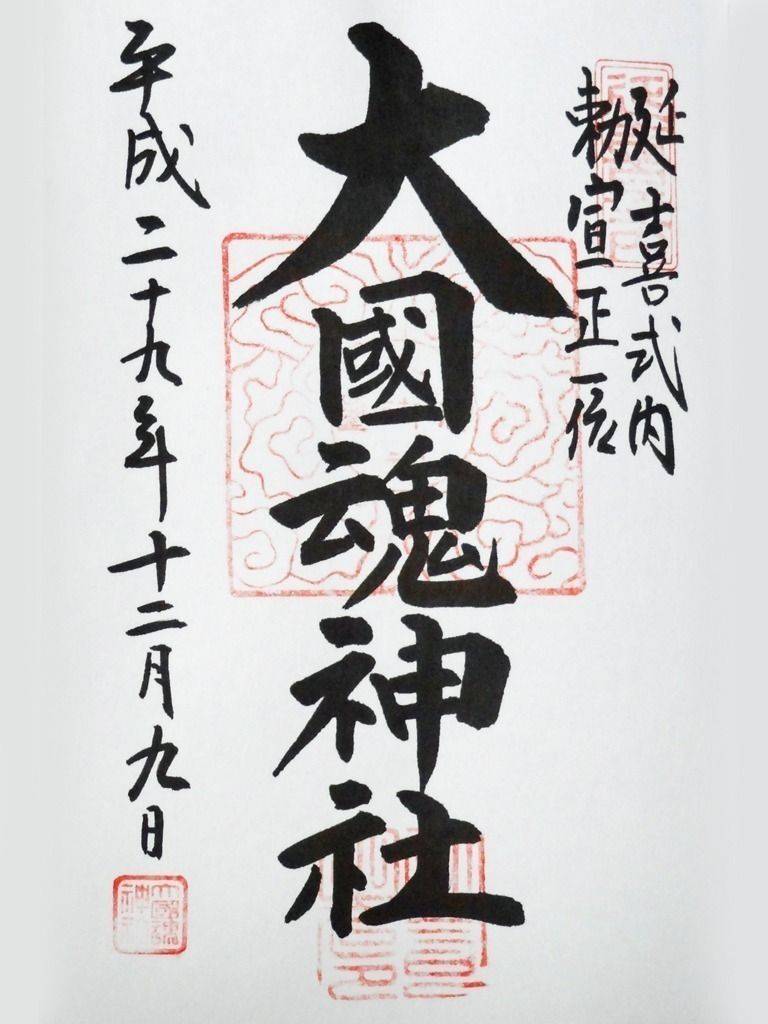 延喜式内
勅宣正一位
大國魂神社
平成二十九年十二月九日